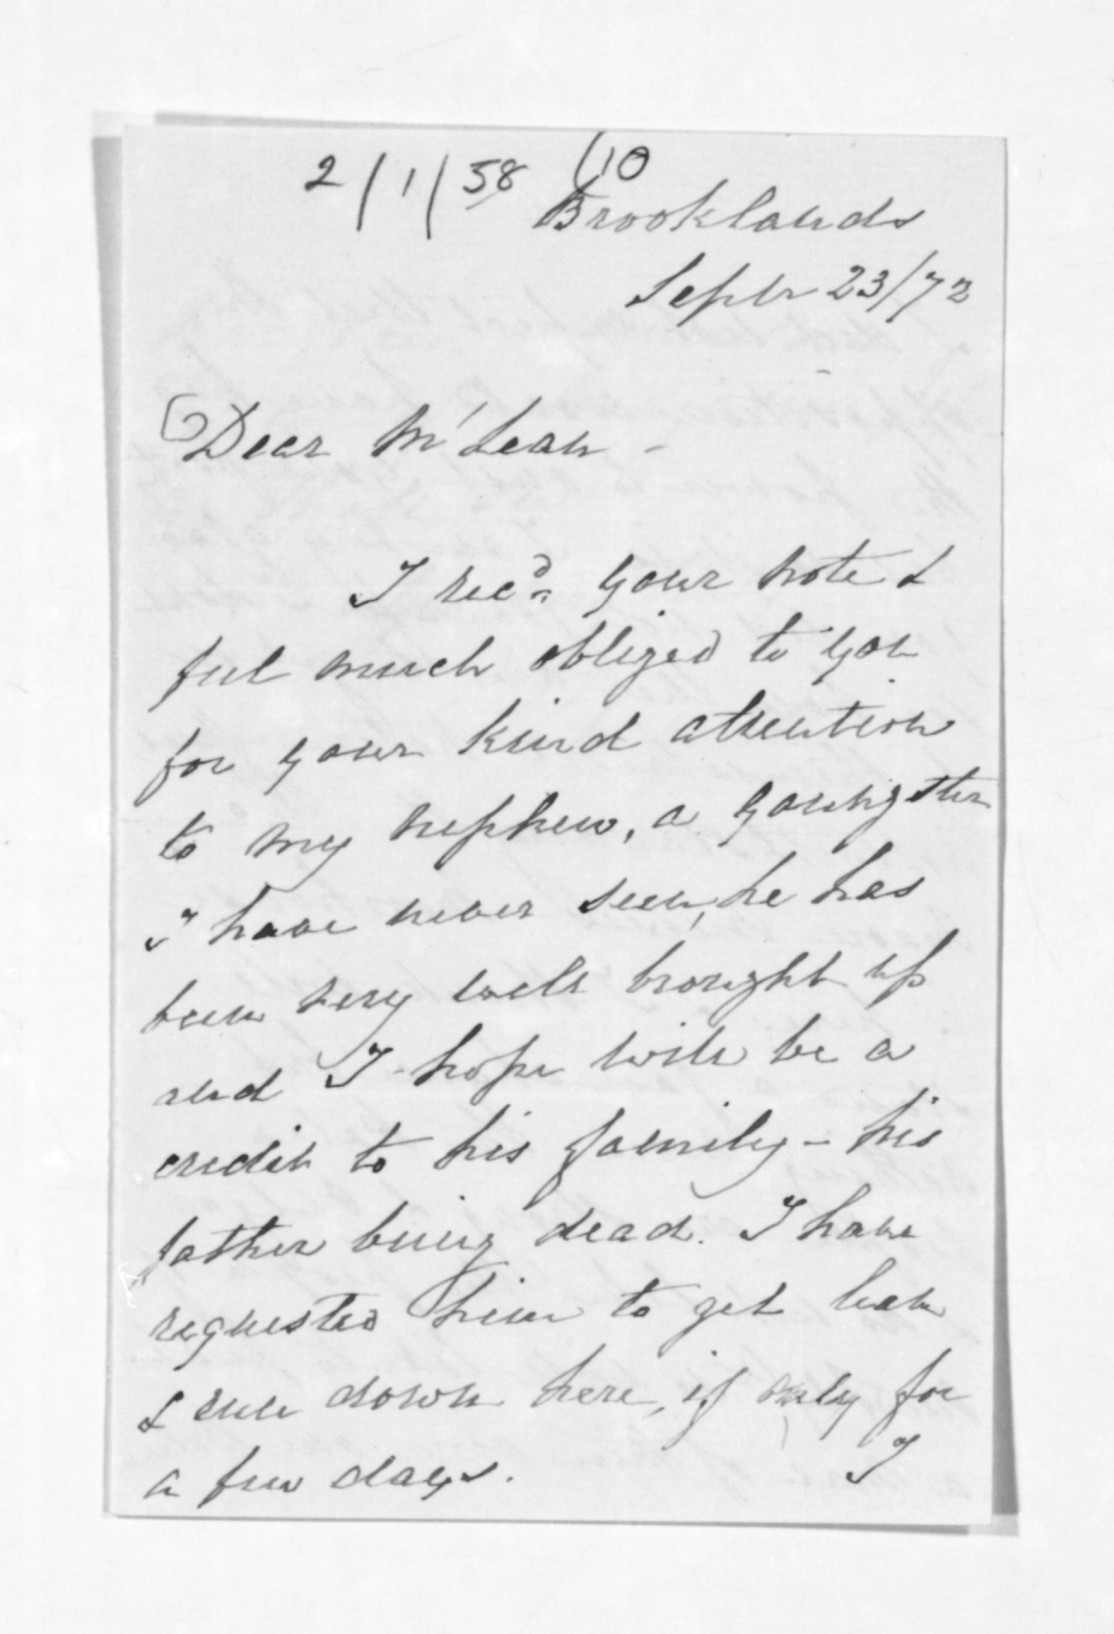 2/1/58 (10
Brooklands
Septr 23/72
Dear McLean -
I recd. your note &
feel much obliged to you
for your kind attention
to my nephew, a youngster
I have never seen, he has
been very well brought up
and I hope will be a
credit to his family - his
father being dead. I have
requested him to get leave
& run down here, if only for
a few days. I